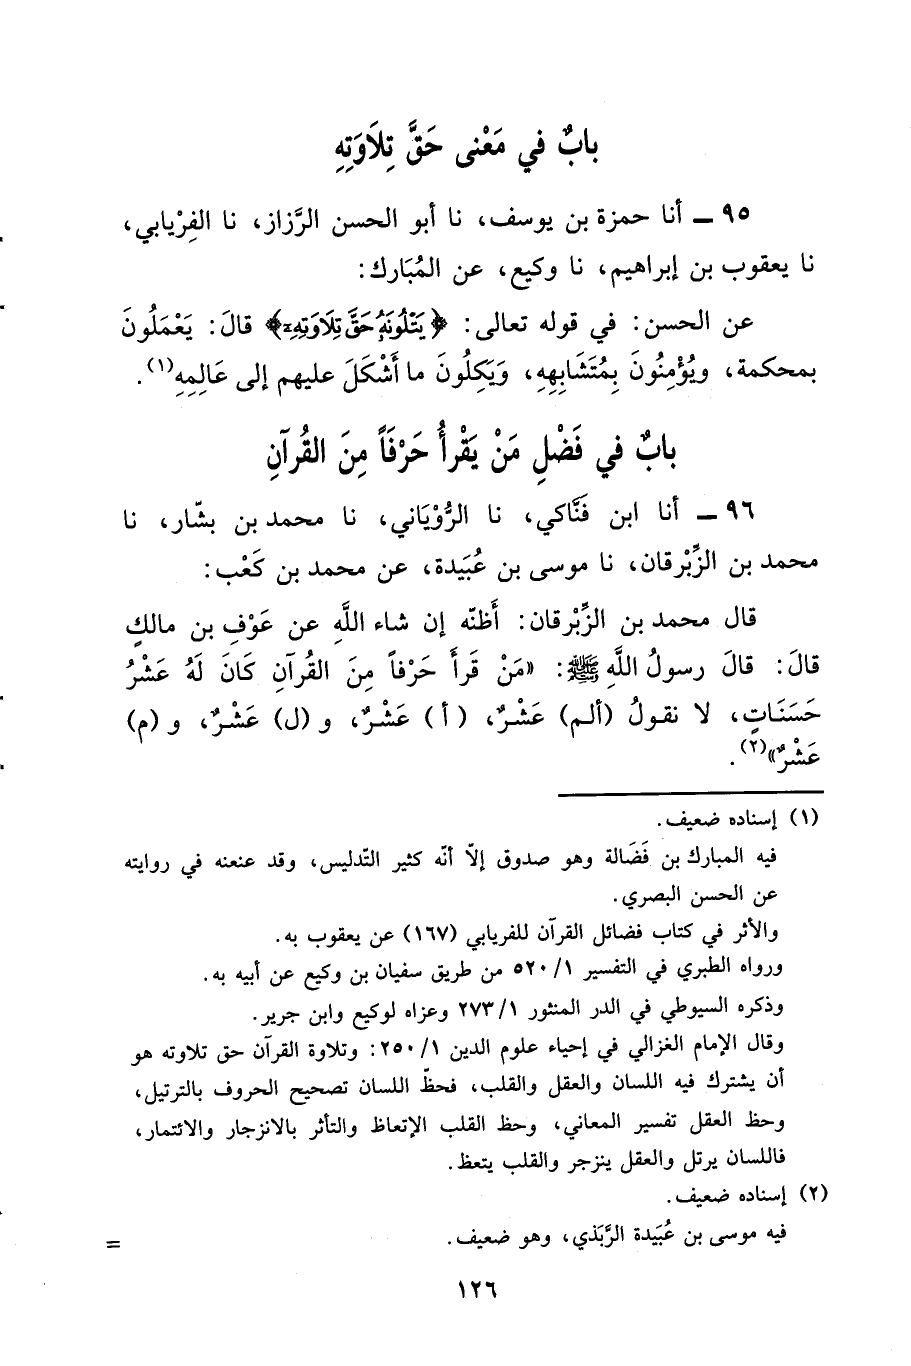 بابٌ في مَعْنى حَقَّ تِلَاوَتِهِ
٩٥ ــ أنا حمزة بن يوسف، نا أبو الحسن الرَّزاز، نا الفِرْيابي،
نا يعقوب بن إبراهيم، نا وكيع، عن المُبَارك:
عن الحسن: في قوله تعالى: ﴿يَتْلُونَهُۥ حَقَّ تِلَاوَتِهِۦ﴾ قالَ: يَعْمَلُونَ
بمحكمة، ويُؤْمِنُونَ بِمُتَشَابِهِهِ، وَيَكِلُونَ ما أَشْكَلَ عليهم إلى عَالِمِهِ(١).
بابٌ في فَضْلِ مَنْ يَقْرأُ حَرْفَاً مِنَ القُرآنِ
٩٦ ــ أنا ابن فَنَّاكي، نا الرُّوْيَاني، نا محمد بن بشّار، نا
محمد بن الزِّبْرقان، نا موسى بن عُبَيدة، عن محمد بن كَعْب:
قال محمد بن الزِّبْرقان: أَظنّه إن شاء اللَّهِ عن عَوْفِ بن مالكٍ
قالَ: قالَ رسولُ اللَّهِ ﷺ: «مَنْ قَرأَ حَرْفاً مِنَ القُرآنِ كَانَ لَهُ عَشْرُ
حَسَنَاتٍ، لا نقولُ (ألم) عَشْرٌ، (أ) عَشْرٌ، و(ل) عَشْرٌ، و(م)
عَشْرٌ»(٢).
(١) إسناده ضعيف.
فيه المبارك بن فَضَالة وهو صدوق إلاّ أنّه كثير التّدليس، وقد عنعنه في روايته
عن الحسن البصري.
والأثر في كتاب فضائل القرآن للفريابي (١٦٧) عن يعقوب به.
ورواه الطبري في التفسير ١/ ٥٢٠ من طريق سفيان بن وكيع عن أبيه به.
وذكره السيوطي في الدر المنثور ١/ ٢٧٣ وعزاه لوكيع وابن جرير.
وقال الإمام الغزالي في إحياء علوم الدين ١/ ٢٥٠: وتلاوة القرآن حق تلاوته هو
أن يشترك فيه اللسان والعقل والقلب، فحظّ اللسان تصحيح الحروف بالترتيل،
وحظ العقل تفسير المعاني، وحظ القلب الإتعاظ والتأثر بالانزجار والائتمار،
فاللسان يرتل والعقل ينزجر والقلب يتعظ.
(٢) إسناده ضعيف.
فيه موسى بن عُبَيدة الرَّبَذي، وهو ضعيف. =
١٢٦